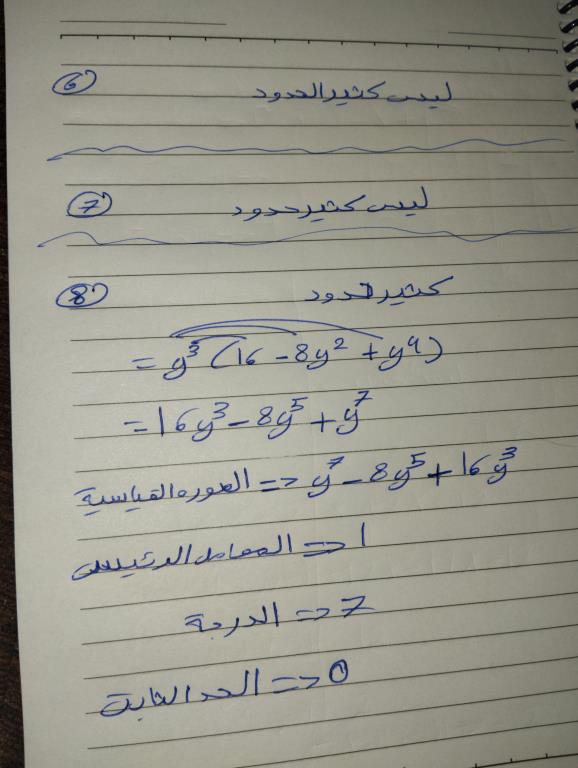 ⑥ ليس كثير الحدود
⑦ ليس كثير حدود
⑧ كثير حدود
= y³ (16 - 8y² + y⁴)
= 16y³ - 8y⁵ + y⁷
y⁷ - 8y⁵ + 16y³ <= الصوره القياسية
1 <= المعامل الرئيسي
7 <= الدرجة
0 <= الحد الثابت